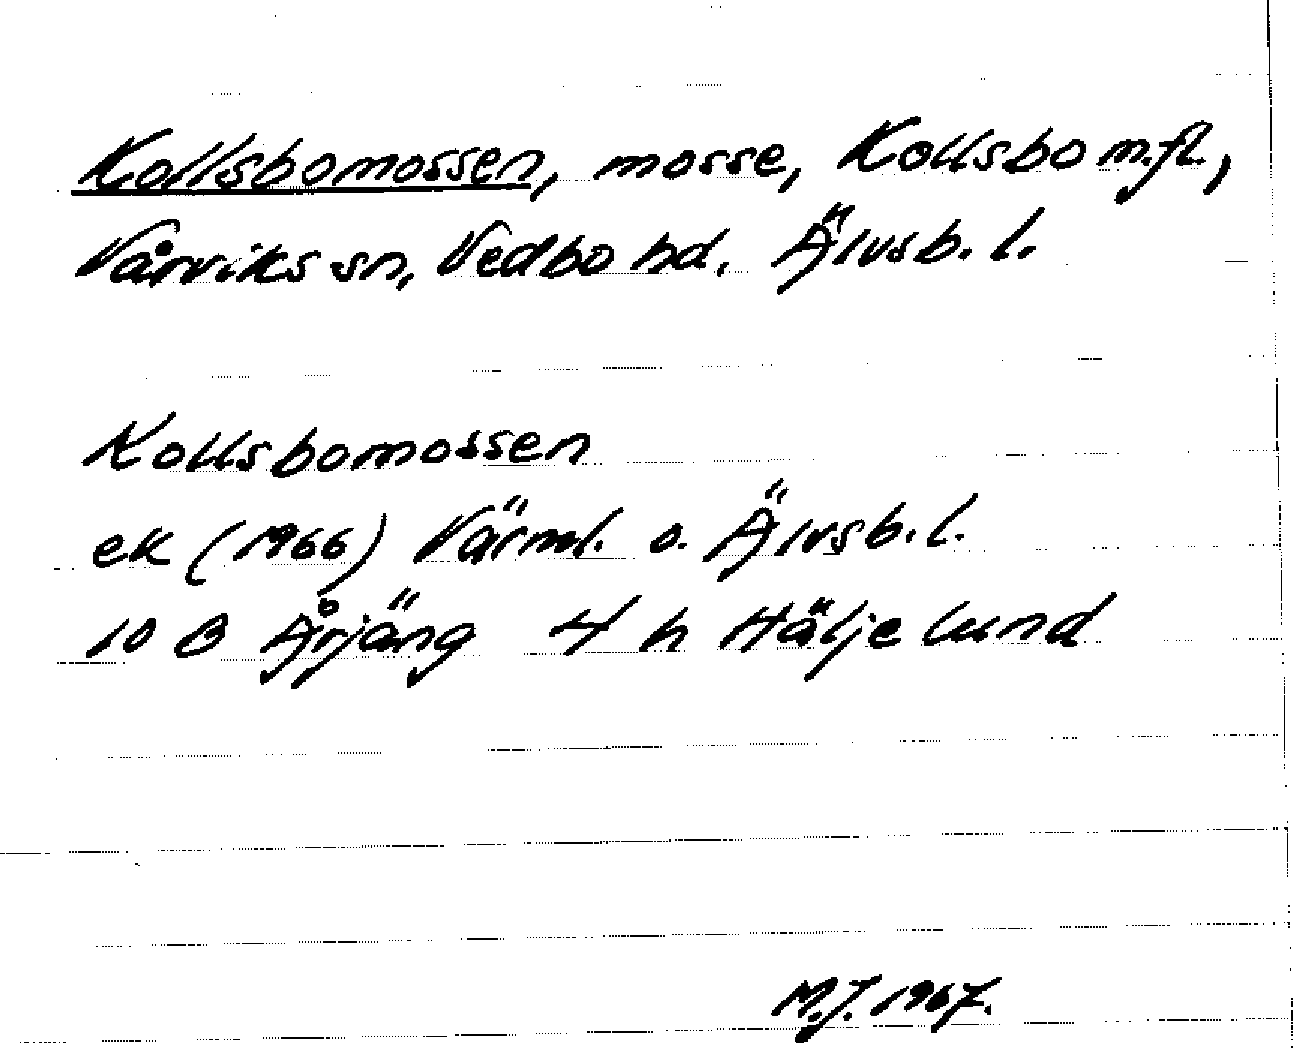 Kollsbomossen, mosse, Kollsbo m.fl.,
Vårviks sn, Vedbo hd, Älvsb. l.
Kollsbomossen
ek (1966) Värml. o. Älvsb. l.
10 B Årjäng 4 h Häljelund
M.J. 1967.